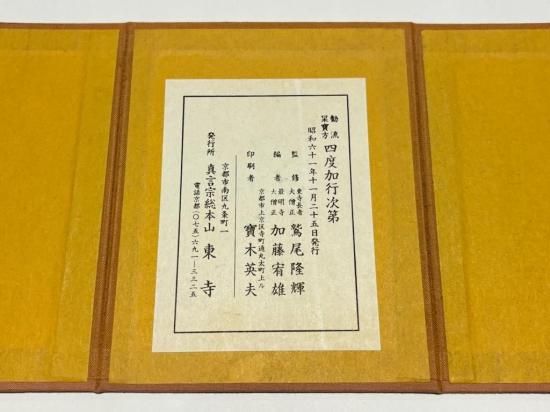 勧流
杲寳方
四度加行次第
昭和六十一年十一月二十五日発行
監修
東寺長者
大僧正
鷲尾隆輝
編者
最明寺
大僧正
加藤宥雄
京都市上京区寺町通丸太町上ル
印刷者
寶木英夫
京都市南区九条町一
発行所
真言宗総本山
東寺
電話京都(〇七五)六九一ー三三二五